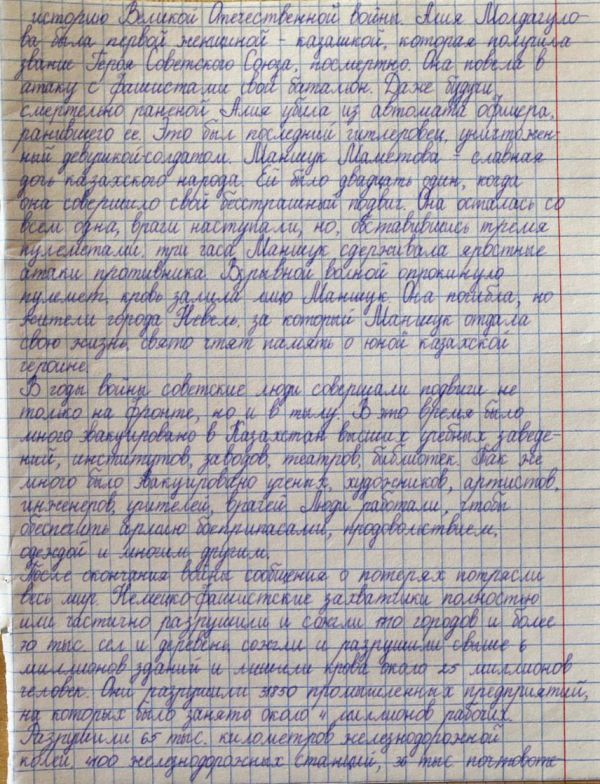 историю Великой Отечественной войны. Алия Молдагуло-
ва была первой женщиной - казашкой, которая получила
звание Героя Советского Союза, посмертно. Она повела в
атаку с фашистами свой батальон. Даже будучи
смертельно раненой Алия убила из автомата офицера,
ранившего ее. Это был последний гитлеровец, уничтожен-
ный девушкой-солдатом. Маншук Маметова - славная
дочь казахского народа. Ей было двадцать один, когда
она совершило свой бесстрашный подвиг. Она осталась со
всем одна, враги наступали, но, обставившись тремя
пулеметами, три часа Маншук сдерживала яростные
атаки противника. Взрывной волной опрокинуло
пулемет, кровь залила лицо Маншук. Она погибла, но
жители города Невель, за который Маншук отдала
свою жизнь, свято чтят память о юной казахской
героине.
В годы войны советские люди совершали подвиги не
только на фронте, но и в тылу. В это время было
много эвакуировано в Казахстан высших учебных заведе-
ний, институтов, заводов, театров, библиотек. Так же
много было эвакуировано ученых, художников, артистов,
инженеров, учителей, врачей. Люди работали, чтобы
обеспечить армию боеприпасами, продовольствием,
одеждой и многим другим.
После окончания войны сообщения о потерях потрясли
весь мир. Немецко-фашистские захватчики полностью
или частично разрушили и сожгли 1710 городов и более
70 тыс. сел и деревень, сожгли и разрушили свыше 6
миллионов зданий и лишили крова около 25 миллионов
человек. Они разрушили 31850 промышленных предприятий,
на которых было занято около 4 миллионов рабочих.
Разрушили 65 тыс. километров железнодорожной
колеи, 4100 железнодорожных станций, 36 тыс почтовоте-